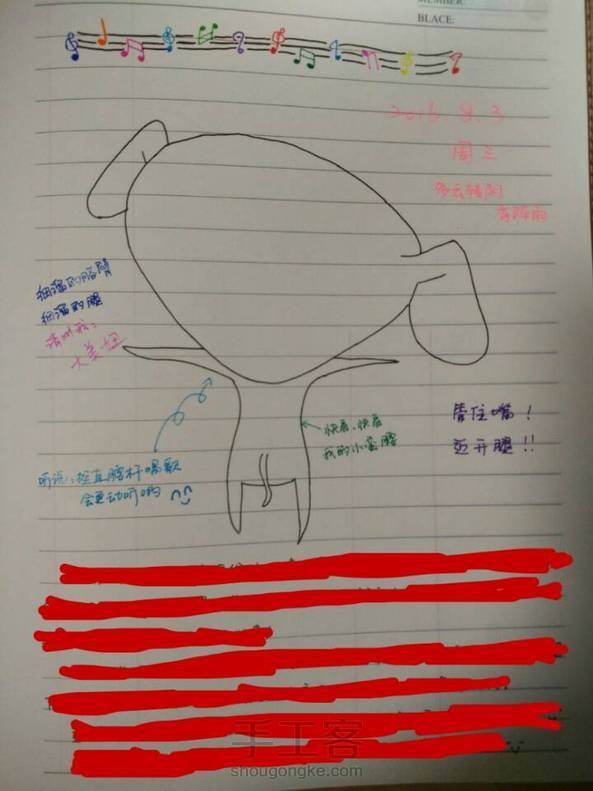 MEMBER:
BLACE:
2016.8.3
周三
多云转阴
有阵雨
细溜的胳臂
细溜的腿
请叫我:
大美妞
快看、快看
我的小蛮腰
管住嘴!
迈开腿!!
听说,挺直腰杆唱歌
会更动听哟
手工客
shougongke.com